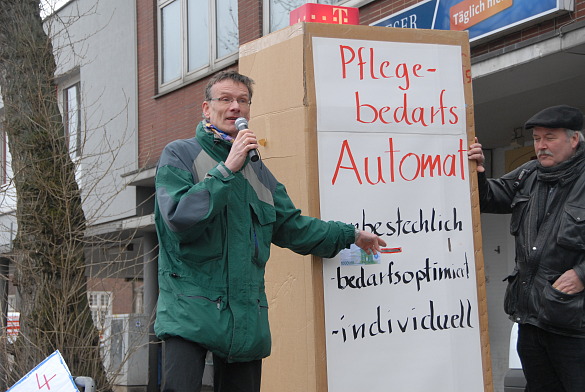 Täglich
Pflege-
bedarfs
Automat
bestechlich
-bedarfsoptimiert
-individuell
4
T